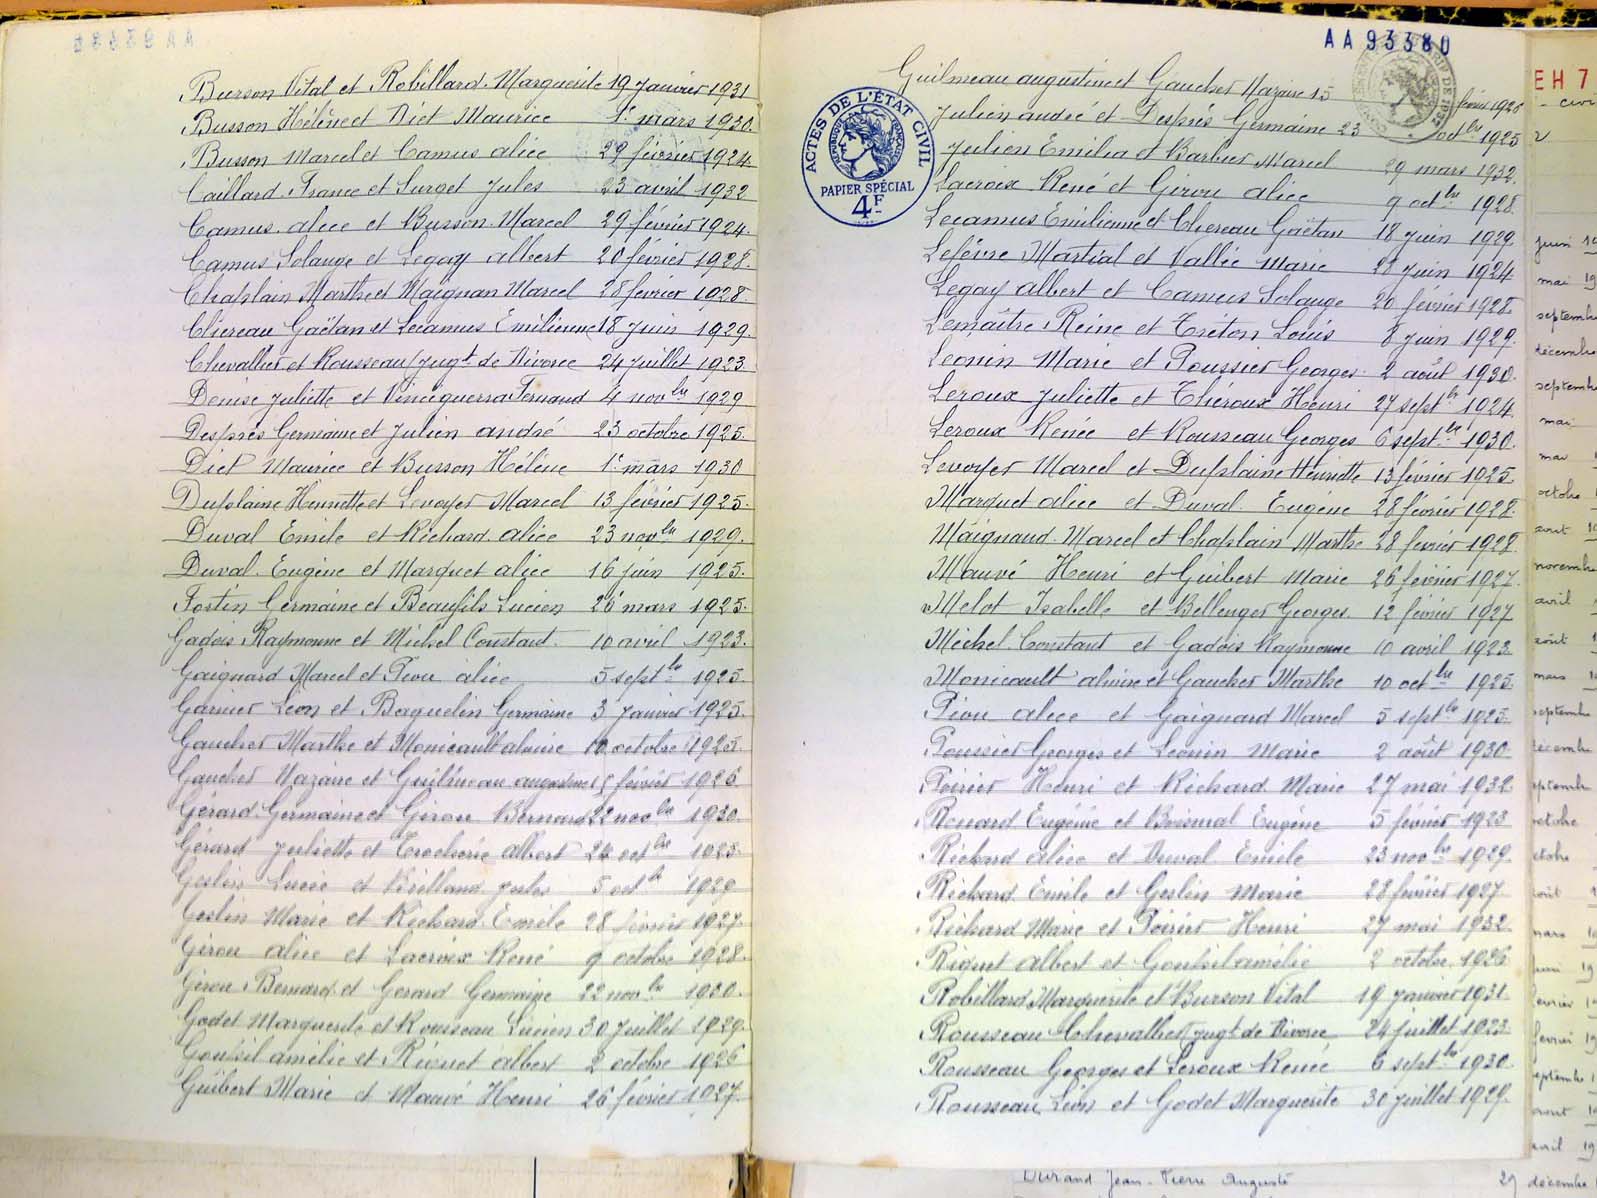 Burson Vital et Robillard Marguerite 19 Janvier 1931
Busson Hélène et Diet Maurice 1er mars 1930.
Busson Marcel et Camus alice 29 février 1924
Caillard France et Surget Jules 23 avril 1932
Camus alice et Busson Marcel 29 février 1924.
Camus Solange et Legay albert 20 février 1928.
Chaplain Marthe et Maignan Marcel 28 fevrier 1928.
Chereau Gaëtan et Lecamus Emilienne 18 Juin 1929.
Chevallier et Rousseau (Jugt de Divorce 24 Juillet 1923.
Denise Juliette et Vinciguerra Fernand 4 novbre 1929
Desprès Germaine et Julien andré 23 octobre 1925.
Diet Maurice et Busson Hélène 1er mars 1930
Duplaine Henriette et Levoyer Marcel 13 février 1925.
Duval Emile et Richard alice 23 novbre 1929.
Duval Eugène et Marquet alice 16 juin 1925.
Fortin Germaine et Beaufils Lucien 26 mars 1925.
Gadois Raymonne et Michel Constant 10 avril 1923.
Gaignard Marcel et Piou alice 5 septbre 1925.
Garnier Leon et Baquelin Germaine 3 Janvier 1925.
Gaucher Marthe et Monicault alvire 10 octobre 1925.
Gaucher Nazaire et Guilmeau augustine 15 février 1926
Gérard Germaine et Girou Bernard 22 novbre 1930.
Gérard Juliette et Trocherie albert 24 octbre 1925.
Geslin Lucie et Brilland Jules 5 octbre 1929
Geslin Marie et Richard Emile 28 février 1927.
Girou alice et Lacroix René 9 octobre 1928.
Girou Bernard et Gerard Germaine 22 novbre 1930.
Godet Marguerite et Rousseau Lucien 30 Juillet 1929.
Goutsil amélie et Riquet albert 2 octobre 1926
Guibert Marie et Mauvé Henri 26 février 1927.
AA93380
ACTES DE L'ÉTAT CIVIL
RÉPUBLIQUE FRANÇAISE
PAPIER SPÉCIAL
4F
Guilmeau augustine et Gaucher Nazaire 15 février 1926
Julien andré et Desprès Germaine 23 octbre 1925
Julien Emilia et Barbier Marcel 29 mars 1932.
Lacroix René et Girou alice 9 octbre 1928.
Lecamus Emilienne et Chereau Gaëtan 18 Juin 1929.
Lefèvre Martial et Vallée Marie 28 Juin 1924
Legay albert et Camus Solange 20 février 1928.
Lemaître Reine et Tréton Louis 8 Juin 1929.
Leonin Marie et Poussier Georges 2 août 1930.
Leroux Juliette et Théroux Henri 27 septbre 1924.
Leroux Renée et Rousseau Georges 6 septbre 1930.
Levoyer Marcel et Duplaine Henriette 13 février 1925
Marquet alice et Duval Eugène 28 février 1928.
Maignand Marcel et Chaplain Marthe 28 fevrier 1928.
Mauvé Henri et Guibert Marie 26 février 1927.
Melot Isabelle et Bellenger Georges 12 février 1927
Michel Constant et Gadois Raymonne 10 avril 1923.
Monicault alvire et Gaucher Marthe 10 octbre 1925
Piou alice et Gaignard Marcel 5 septbre 1925.
Poussier Georges et Leonin Marie 2 août 1930
Poirier Henri et Richard Marie 27 mai 1932
Renard Eugénie et Brismal Eugène 5 février 1923
Richard alice et Duval Emile 23 novbre 1929.
Richard Emile et Geslin Marie 28 février 1927
Richard Marie et Poirier Henri 27 mai 1932.
Riquet albert et Goutsil amélie 2 octobre 1926
Robillard Marguerite et Burson Vital 19 Janvier 1931.
Rousseau Chevallier (Jugt de Divorce 24 juillet 1923
Rousseau Georges et Leroux Renée 6 septbre 1930.
Rousseau Léon et Godet Marguerite 30 Juillet 1929.
EH 7
juin 19
mai 19
septembre
décembre
septembre
mai
mai
octobre
août
novembre
avril
août
mars
septembre
décembre
septembre
octobre
octobre
août
mars
juin 19
fevrier
fevrier
septembre
août
avril 19
Durand Jean-Pierre Auguste 29 décembre